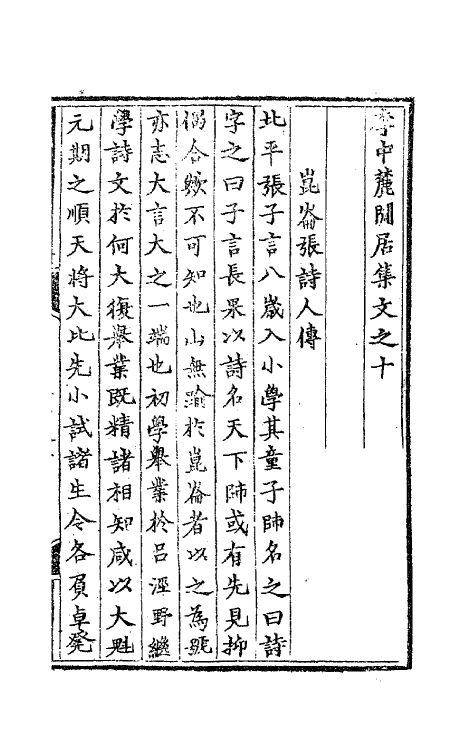 李中麓閒居集文之十
崑崙張詩人傳
北平張子言八歲入小學其童子師名之曰詩
字之曰子言長果以詩名天下師或有先見抑
偶合歟不可知也山無踰於崑崙者以之為號
亦志大言大之一端也初學舉業於呂涇野繼
學詩文於何大復舉業既精諸相知咸以大魁
元期之順天將大比先小試諸生令各負卓凳